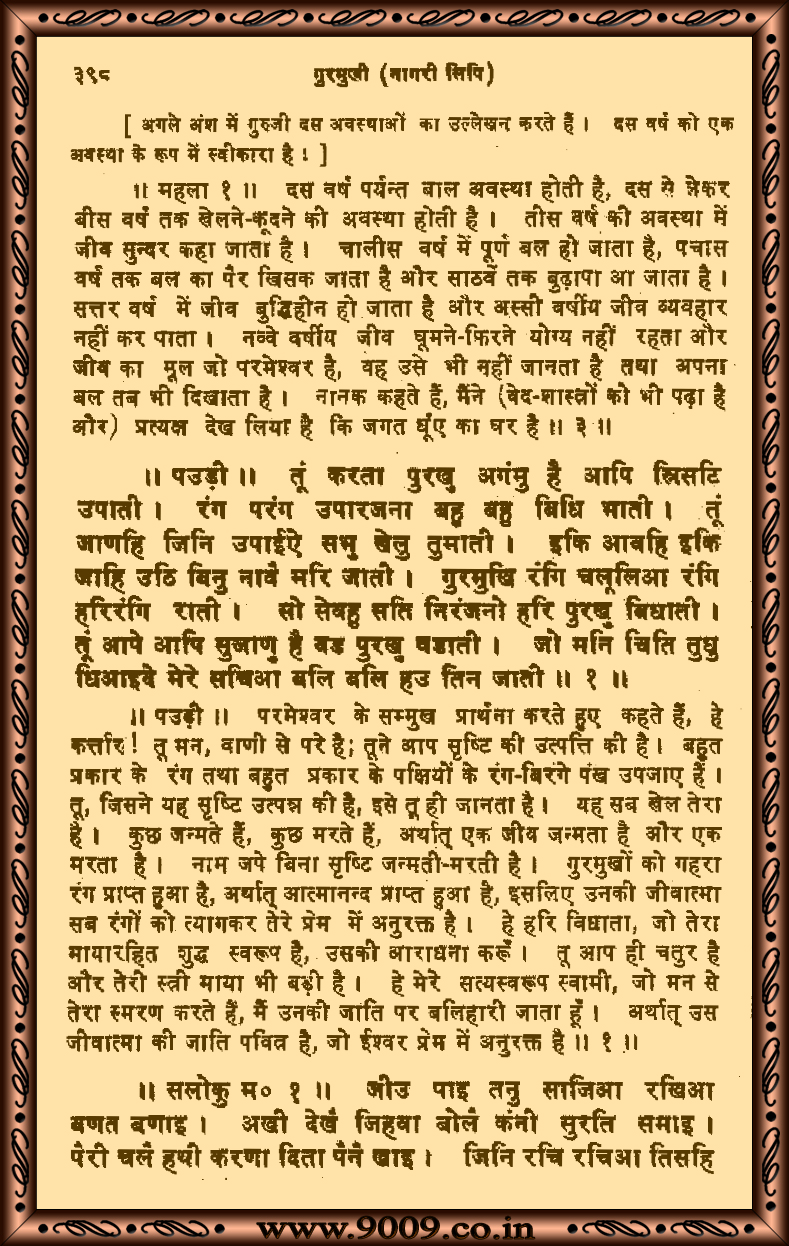 ३९८ गुरमुखी (नागरी लिपि)
[ अगले अंश में गुरुजी दस अवस्थाओं का उल्लेखन करते हैं । दस वर्ष को एक
अवस्था के रूप में स्वीकारा है । ]
॥ महला १ ॥ दस वर्ष पर्यन्त बाल अवस्था होती है, दस से लेकर
बीस वर्ष तक खेलने-कूदने की अवस्था होती है । तीस वर्ष की अवस्था में
जीव सुन्दर कहा जाता है । चालीस वर्ष में पूर्ण बल हो जाता है, पचास
वर्ष तक बल का पैर खिसक जाता है और साठवें तक बुढ़ापा आ जाता है ।
सत्तर वर्ष में जीव बुद्धिहीन हो जाता है और अस्सी वर्षीय जीव व्यवहार
नहीं कर पाता । नव्वे वर्षीय जीव घूमने-फिरने योग्य नहीं रहता और
जीव का मूल जो परमेश्वर है, वह उसे भी नहीं जानता है तथा अपना
बल तब भी दिखाता है । नानक कहते हैं, मैंने (वेद-शास्त्रों को भी पढ़ा है
और) प्रत्यक्ष देख लिया है कि जगत धूंए का घर है ॥ ३ ॥
॥ पउड़ी ॥ तूं करता पुरखु अगंमु है आपि स्रिसटि
उपाती । रंग परंग उपारजना बहु बहु बिधि भाती । तूं
जाणहि जिनि उपाईऐ सभु खेलु तुमाती । इकि आवहि इकि
जाहि उठि बिनु नावै मरि जाती । गुरमुखि रंगि चलूलिआ रंगि
हरिरंगि राती । सो सेवहु सति निरंजनो हरि पुरखु बिधाती ।
तूं आपे आपि सुजाणु है वड पुरखु वडाती । जो मनि चिति तुधु
धिआइदे मेरे सचिआ बलि बलि हउ तिन जाती ॥ १ ॥
॥ पउड़ी ॥ परमेश्वर के सम्मुख प्रार्थना करते हुए कहते हैं, हे
कर्त्तार ! तू मन, वाणी से परे है; तूने आप सृष्टि की उत्पत्ति की है । बहुत
प्रकार के रंग तथा बहुत प्रकार के पक्षियों के रंग-बिरंगे पंख उपजाए हैं ।
तू, जिसने यह सृष्टि उत्पन्न की है, इसे तू ही जानता है । यह सब खेल तेरा
है । कुछ जन्मते हैं, कुछ मरते हैं, अर्थात् एक जीव जन्मता है और एक
मरता है । नाम जपे बिना सृष्टि जन्मती-मरती है । गुरमुखों को गहरा
रंग प्राप्त हुआ है, अर्थात् आत्मानन्द प्राप्त हुआ है, इसलिए उनकी जीवात्मा
सब रंगों को त्यागकर तेरे प्रेम में अनुरक्त है । हे हरि विधाता, जो तेरा
मायारहित शुद्ध स्वरूप है, उसकी आराधना करूँ । तू आप ही चतुर है
और तेरी स्त्री माया भी बड़ी है । हे मेरे सत्यस्वरूप स्वामी, जो मन से
तेरा स्मरण करते हैं, मैं उनकी जाति पर बलिहारी जाता हूँ । अर्थात् उस
जीवात्मा की जाति पवित्र है, जो ईश्वर प्रेम में अनुरक्त है ॥ १ ॥
॥ सलोकु म० १ ॥ जीउ पाइ तनु साजिआ रखिआ
बणत बणाइ । अखी देखै जिहवा बोलै कंनी सुरति समाइ ।
पैरी चलै हथी करणा दिता पैनै खाइ । जिनि रचि रचिआ तिसहि
www.9009.co.in